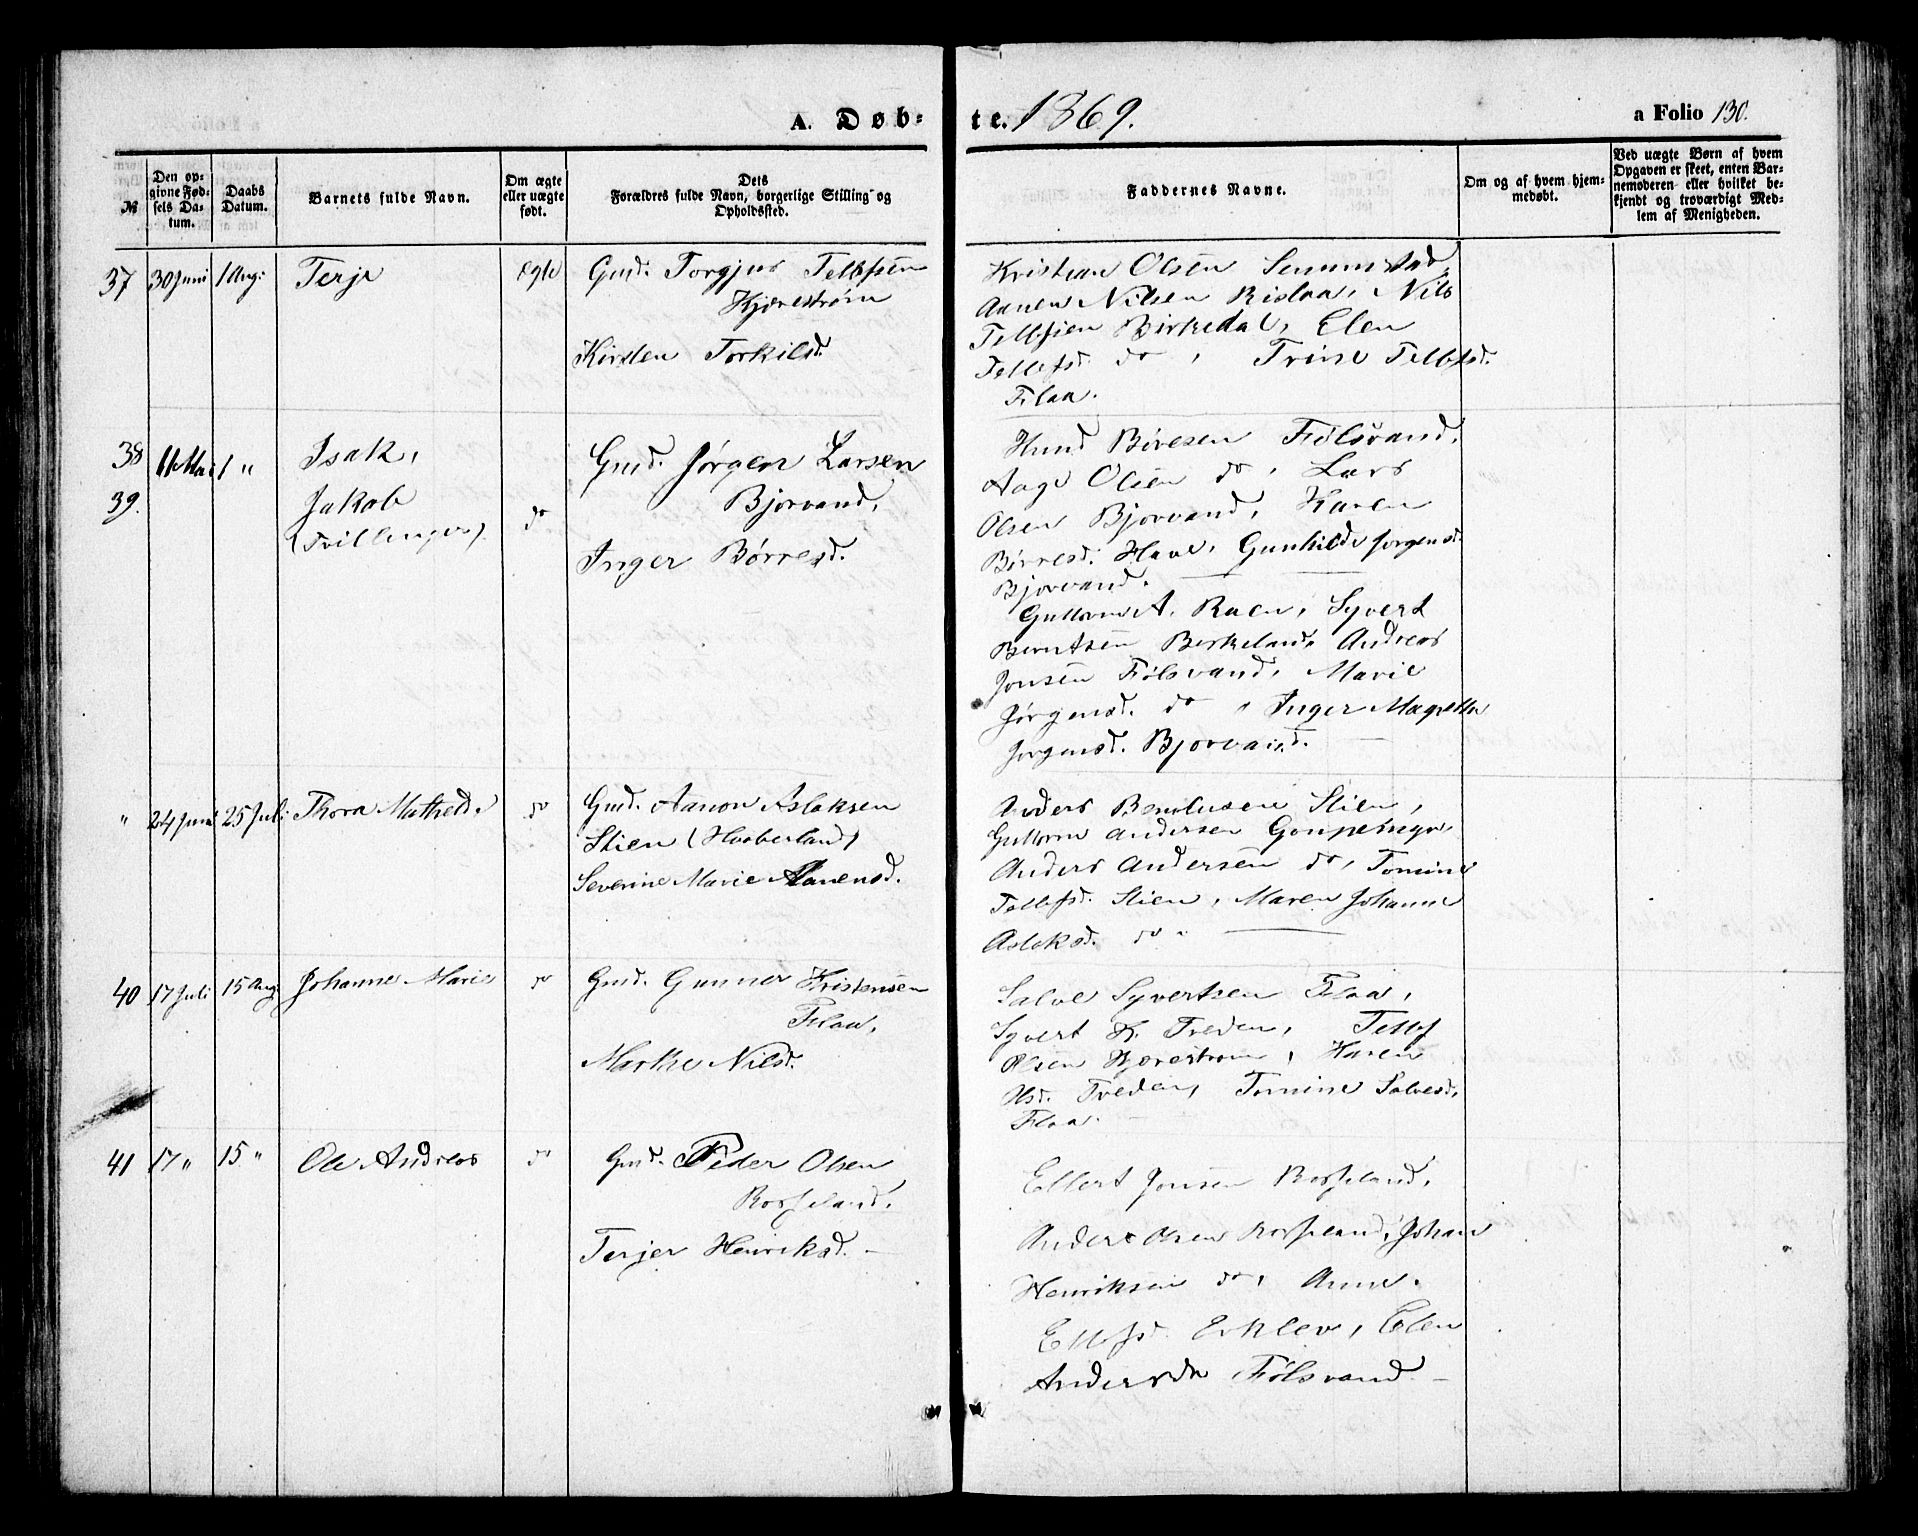 A. Døb- te. 1869.
a Folio 130.
№
Den op-
givne Fød-
sels Da-
tum.
Daabs
Datum.
Barnets fulde Navn.
Om ægte
eller uægte
født.
Dets
Forældres fulde Navn, borgerlige Stilling og
Opholdssted.
Faddernes Navne.
Om og af hvem hjem-
medøbt.
Ved uægte Børn af hvem
Opgaven er skeet, enten Bar-
nemoderen eller hvilket be-
kjendt og troværdigt Med-
lem af Menigheden.
37 30 Juni 1 Aug: Terje Ægte Gmd. Torgjus Tellefsen
Hjærestrøm
Kirsten Torkilsd.
Kristian Olsen
Aanen Nilsen Rislaa, Nils
Tellefsen Birkedal, Elen
Tellefsd. do, Trine Tellefsd.
Flaa.
38 11 Mai 1 " Isak,
39. Jakob
(Tvillinger) do
Gmd. Jørgen Larsen
Bjorvand,
Inger Børresd.
Børesen Følsvand,
Aage Olsen do, Lars
Olsen Bjorvand, Karen
Børresd. Have, Gunhilde Jørgensd.
Bjorvand.
Guttorm A. Raen, Syvert
Berntsen Berkeland, Andreas
Jonsen Følsvand, Marie
Jørgensd. do, Inger Magrethe
Jørgensd. Bjorvand.
" 24 Juni 25 Juli Thora Mathilde do Gmd. Aanon Aslaksen
Stien (Haaberland)
Severine Marie Aanensd.
Anders Stien,
Guttorm Andersen
Anders Andersen do, Tomine
Tellefsd. Stien, Maren Johanne
Aslaksd. do.
40 17 Juli 15 Aug. Johanne Marie do Gmd. Gunner Kristensen
Flaa,
Marthe Nilsd.
Salve Syvertsen Flaa,
Syvert K. Treden, Tellef
Olsen Hjærestrøm, Karen
Olsd. Tveden, Tomine Salvesd.
Flaa.
41 17 " 15 " Ole Andreas do Gmd. Peder Olsen
Rosseland,
Terjer Henriksd.
Ellert Jonsen Rosseland,
Anders Olsen Rosseland, Johan
Henriksen do, Anne
Ellefsd. Esklev, Elen
Andersdr Følsvand